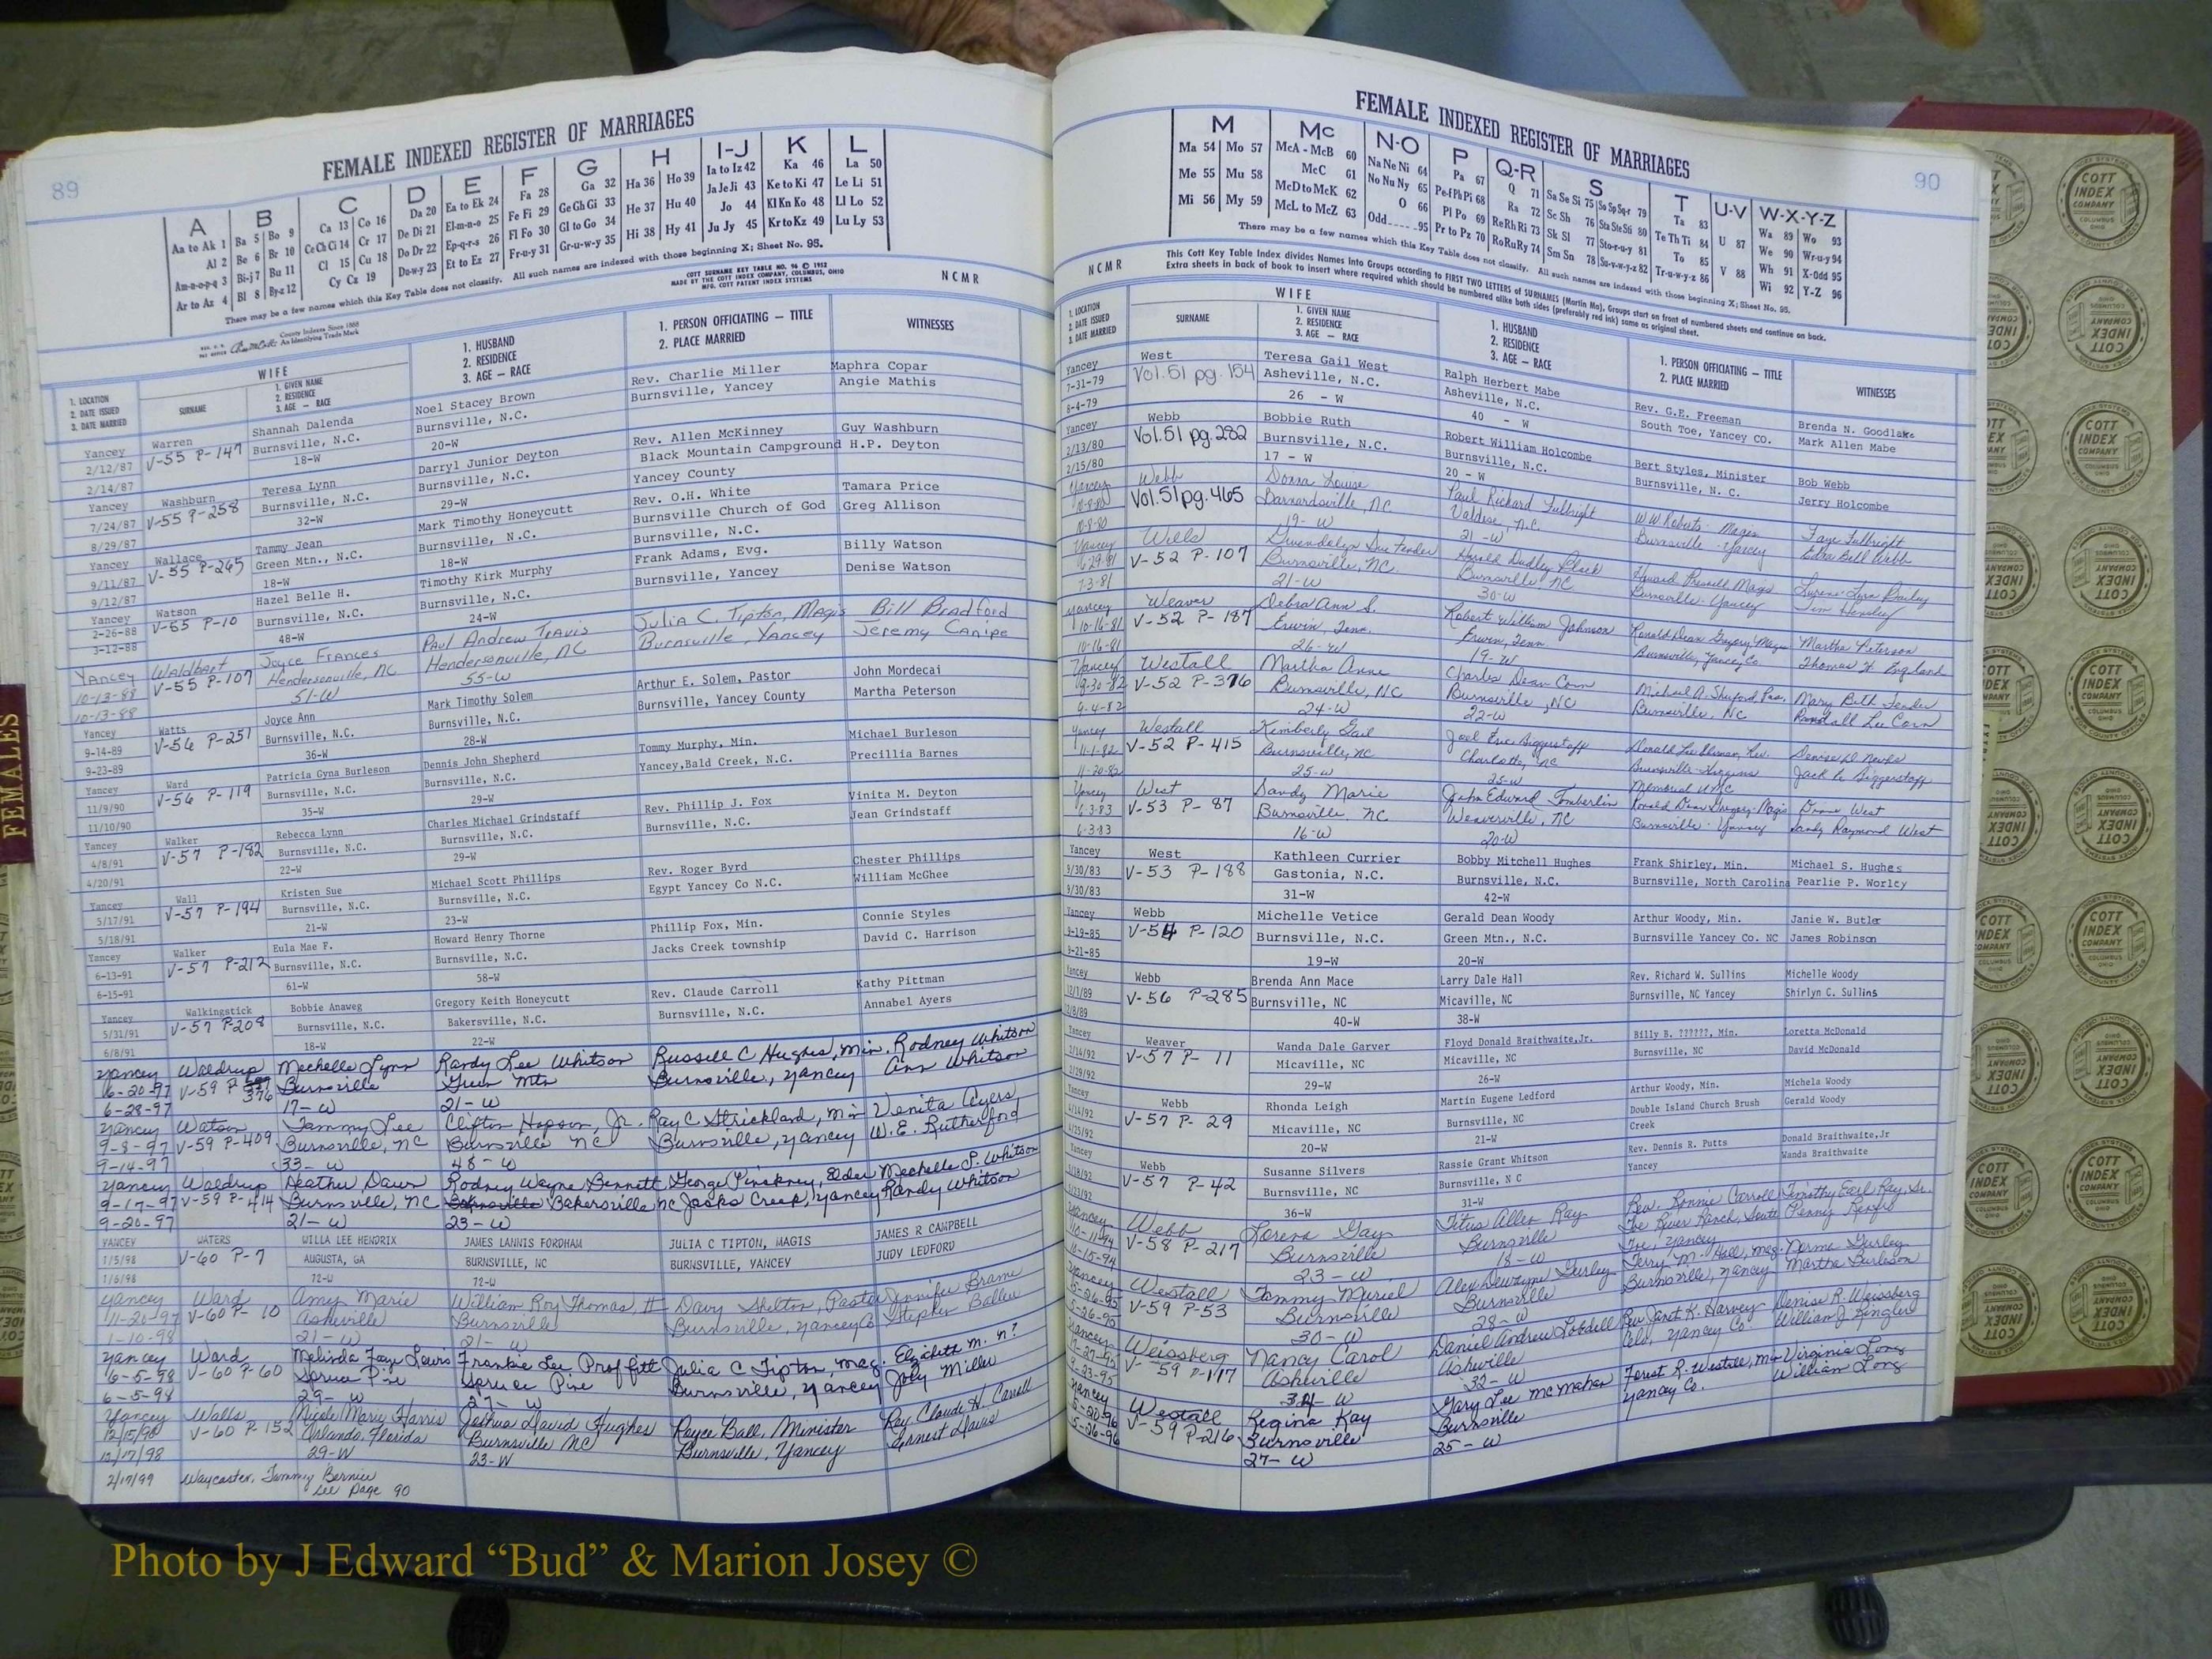 89
FEMALE INDEXED REGISTER OF MARRIAGES
A B C D E F G H I-J K L
Aa to Ak 1 Ba 5 Bo 9 Ca 13 Co 16 Da 20 Ea to Ek 24 Fa 28 Ga 32 Ha 36 Ho 39 Ia to Iz 42 Ka 46 La 50
Al 2 Be 6 Br 10 Ce Ch Ci 14 Cr 17 De Di 21 El-m-n-o 25 Fe Fi 29 Ge Gh Gi 33 He 37 Hu 40 Ja Je Ji 43 Ke to Ki 47 Le Li 51
Am-n-o-p-q 3 Bi-j 7 Bu 11 Cl 15 Cu 18 Do Dr 22 Ep-q-r-s 26 Fl Fo 30 Gl to Go 34 Hi 38 Hy 41 Jo 44 Kl Kn Ko 48 Ll Lo 52
Ar to Az 4 Bl 8 By-z 12 Cy Cz 19 Du-w-y 23 Et to Ez 27 Fr-u-y 31 Gr-u-w-y 35 Ju Jy 45 Kr to Kz 49 Lu Ly 53
There may be a few names which this Key Table does not classify. All such names are indexed with those beginning X; Sheet No. 95.
County Indexes Since 1888
An Identifying Trade Mark
COTT SURNAME KEY TABLE NO. 96 © 1952
MADE BY THE COTT INDEX COMPANY, COLUMBUS, OHIO
MFG. COTT PATENT INDEX SYSTEMS
NCMR
1. LOCATION
2. DATE ISSUED
3. DATE MARRIED
WIFE
SURNAME
1. GIVEN NAME
2. RESIDENCE
3. AGE — RACE
1. HUSBAND
2. RESIDENCE
3. AGE — RACE
1. PERSON OFFICIATING — TITLE
2. PLACE MARRIED
WITNESSES
Yancey Warren Shannah Dalenda Noel Stacey Brown Rev. Charlie Miller Maphra Copar
2/12/87 V-55 P-147 Burnsville, N.C. Burnsville, N.C. Burnsville, Yancey Angie Mathis
2/14/87 18-W 20-W
Yancey Washburn Teresa Lynn Darryl Junior Deyton Rev. Allen McKinney Guy Washburn
7/24/87 V-55 P-258 Burnsville, N.C. Burnsville, N.C. Black Mountain Campground H.P. Deyton
8/29/87 32-W 29-W Yancey County
Yancey Wallace Tammy Jean Mark Timothy Honeycutt Rev. O.H. White Tamara Price
9/11/87 V-55 P-265 Green Mtn., N.C. Burnsville, N.C. Burnsville Church of God Greg Allison
9/12/87 18-W 18-W Burnsville, N.C.
Yancey Watson Hazel Belle H. Timothy Kirk Murphy Frank Adams, Evg. Billy Watson
2-26-88 V-55 P-10 Burnsville, N.C. Burnsville, N.C. Burnsville, Yancey Denise Watson
3-12-88 48-W 24-W
Yancey Waldhart Joyce Frances Paul Andrew Travis Julia C. Tipton, Magis Bill Bradford
10-13-88 V-55 P-107 Hendersonville, NC Hendersonville, NC Burnsville, Yancey Jeremy Canipe
10-13-88 51-W 55-W
Yancey Watts Joyce Ann Mark Timothy Solem Arthur E. Solem, Pastor John Mordecai
9-14-89 V-56 P-251 Burnsville, N.C. Burnsville, N.C. Burnsville, Yancey County Martha Peterson
9-23-89 36-W 28-W
Yancey Ward Patricia Gyna Burleson Dennis John Shepherd Tommy Murphy, Min. Michael Burleson
11/9/90 V-56 P-119 Burnsville, N.C. Burnsville, N.C. Yancey,Bald Creek, N.C. Precillia Barnes
11/10/90 35-W 29-W
Yancey Walker Rebecca Lynn Charles Michael Grindstaff Rev. Phillip J. Fox Vinita M. Deyton
4/8/91 V-57 P-182 Burnsville, N.C. Burnsville, N.C. Burnsville, N.C. Jean Grindstaff
4/20/91 22-W 29-W
Yancey Wall Kristen Sue Michael Scott Phillips Rev. Roger Byrd Chester Phillips
5/17/91 V-57 P-194 Burnsville, N.C. Burnsville, N.C. Egypt Yancey Co N.C. William McGhee
5/18/91 21-W 23-W
Yancey Walker Eula Mae F. Howard Henry Thorne Phillip Fox, Min. Connie Styles
6-13-91 V-57 P-212 Burnsville, N.C. Burnsville, N.C. Jacks Creek township David C. Harrison
6-15-91 61-W 58-W
Yancey Walkingstick Bobbie Anaweg Gregory Keith Honeycutt Rev. Claude Carroll Kathy Pittman
5/31/91 V-57 P-208 Burnsville, N.C. Bakersville, N.C. Burnsville, N.C. Annabel Ayers
6/8/91 18-W 22-W
Yancey Waldrup Mechelle Lynn Randy Lee Whitson Russell C Hughes, Min. Rodney Whitson
6-20-97 V-59 P-376 Burnsville Green Mtn Burnsville, Yancey Ann Whitson
6-28-97 17-W 21-W
Yancey Watson Tammy Lee Clifton Hopson, Jr. Ray C Strickland, Min Venita Ayers
9-8-97 V-59 P-409 Burnsville, NC Burnsville NC Burnsville, Yancey W.E. Rutherford
9-14-97 33-W 48-W
Yancey Waldrup Heather Dawn Rodney Wayne Bennett George Pinckney, Elder Mechelle L. Whitson
9-17-97 V-59 P-414 Burnsville, NC Burnsville Bakersville NC Jacks Creek, Yancey Randy Whitson
9-20-97 21-W 23-W
YANCEY WATERS WILLA LEE HENDRIX JAMES LANNIS FORDHAM JULIA C TIPTON, MAGIS JAMES R CAMPBELL
1/5/98 V-60 P-7 AUGUSTA, GA BURNSVILLE, NC BURNSVILLE, YANCEY JUDY LEDFORD
1/6/98 72-W 72-W
Yancey Ward Amy Marie William Roy Thomas, II Davy Shelton, Pastor Jennifer Brame
11-20-97 V-60 P-10 Asheville Burnsville Burnsville, Yancey Co Stephen Ballew
1-10-98 21-W 21-W
Yancey Ward Melinda Faye Laws Frankie Lee Proffitt Julia C Tipton, Mag. Elizabeth M. N?
6-5-98 V-60 P-60 Spruce Pine Spruce Pine Burnsville, Yancey Joey Miller
6-5-98 29-W 27-W
Yancey Walls Nicole Marie Harris Joshua David Hughes Royce Ball, Minister Ray Claude H. Carroll
12/15/98 V-60 P-152 Orlando, Florida Burnsville NC Burnsville, Yancey Ernest Davis
12/17/98 29-W 23-W
2/17/99 Waycaster, Tammy Bernice
see page 90
90
FEMALE INDEXED REGISTER OF MARRIAGES
M Mc N-O P Q-R S T U-V W-X-Y-Z
Ma 54 Mo 57 McA - McB 60 Na Ne Ni 64 Pa 67 Q 71 Sa Se Si 75 So Sp Sq-r 79 Ta 83 Wa 89 Wo 93
Me 55 Mu 58 McC 61 No Nu Ny 65 Pe-f Ph Pi 68 Ra 72 Sc Sh 76 Sta Ste Sti 80 Te Th Ti 84 U 87 We 90 Wr-u-y 94
Mi 56 My 59 McD to McK 62 O 66 Pl Po 69 Re Rh Ri 73 Sk Sl 77 Sto-r-u-y 81 To 85 V 88 Wh 91 X-Odd 95
McL to McZ 63 Odd 95 Pr to Pz 70 Ro Ru Ry 74 Sm Sn 78 Su-v-w-y-z 82 Tr-u-w-y-z 86 Wi 92 Y-Z 96
There may be a few names which this Key Table does not classify. All such names are indexed with those beginning X; Sheet No. 95.
NCMR
This Cott Key Table Index divides Names into Groups according to FIRST TWO LETTERS of SURNAMES (Martin Ma), Groups start on front of numbered sheets and continue on back.
Extra sheets in back of book to insert where required which should be numbered alike both sides (preferably red ink) same as original sheet.
1. LOCATION
2. DATE ISSUED
3. DATE MARRIED
WIFE
SURNAME
1. GIVEN NAME
2. RESIDENCE
3. AGE — RACE
1. HUSBAND
2. RESIDENCE
3. AGE — RACE
1. PERSON OFFICIATING — TITLE
2. PLACE MARRIED
WITNESSES
Yancey West Teresa Gail West Ralph Herbert Mabe Rev. G.R. Freeman Brenda N. Goodlake
7-31-79 Vol. 51 pg. 154 Asheville, N.C. Asheville, N.C. South Toe, Yancey CO. Mark Allen Mabe
8-4-79 26 - W 40 - W
Yancey Webb Bobbie Ruth Robert William Holcombe Bert Styles, Minister Bob Webb
2/13/80 Vol. 51 pg. 282 Burnsville, N.C. Burnsville, N.C. Burnsville, N. C. Jerry Holcombe
2/15/80 17 - W 20 - W
Yancey Webb Donna Louise Paul Richard Fulbright W.W. Roberts - Magis Faye Fulbright
10-8-80 Vol. 51 pg. 465 Barnardsville, NC Valdese, N.C. Burnsville - Yancey Edra Bell Webb
10-8-80 19-W 21-W
Yancey Wells Gwendolyn Sue Fender Harold Dudley Howard Presnell Magis
6-29-81 V-52 P-107 Burnsville, NC Burnsville, NC Burnsville - Yancey Jim Hensley
7-3-81 21-W 30-W
Yancey Weaver Debra Ann S. Robert William Johnson Ronald Dean Gregory, Magis Martha Peterson
10-16-81 V-52 P-187 Erwin, Tenn. Erwin, Tenn Burnsville, Yancey Co Thomas H. England
10-16-81 26-W 19-W
Yancey Westall Martha Anne Charles Dean Conn Michael A. Shuford, Pas. Mary Beth Fender
V-52 P-376 Burnsville, NC Burnsville, NC Burnsville, NC Randall Lee Conn
9-4-82 24-W 22-W
Yancey Westall Kimberly Gail Joel Eric Biggerstaff Denise D. Nevels
11-1-82 V-52 P-415 Burnsville, NC Charlotte, NC Burnsville-Higgins Jack L. Biggerstaff
11-20-82 25-W 25-W Memorial UMC
Yancey West Sandy Marie John Edward Tomberlin Ronald Dean Gregory-Magis Donna West
6-3-83 V-53 P-87 Burnsville, NC Weaverville, NC Burnsville - Yancey Sandy Raymond West
6-3-83 16-W 20-W
Yancey West Kathleen Currier Bobby Mitchell Hughes Frank Shirley, Min. Michael S. Hughes
9/30/83 V-53 P-188 Gastonia, N.C. Burnsville, N.C. Burnsville, North Carolina Pearlie P. Worley
9/30/83 31-W 42-W
Yancey Webb Michelle Vetice Gerald Dean Woody Arthur Woody, Min. Janie W. Butler
9-19-85 V-54 P-120 Burnsville, N.C. Green Mtn., N.C. Burnsville Yancey Co. NC James Robinson
9-21-85 19-W 20-W
Yancey Webb Brenda Ann Mace Larry Dale Hall Rev. Richard W. Sullins Michelle Woody
12/1/89 V-56 P-285 Burnsville, NC Micaville, NC Burnsville, NC Yancey Shirlyn C. Sullins
12/8/89 40-W 38-W
Yancey Weaver Wanda Dale Garver Floyd Donald Braithwaite,Jr. Billy B. ??????, Min. Loretta McDonald
2/14/92 V-57 P-11 Micaville, NC Micaville, NC Burnsville, NC David McDonald
2/29/92 29-W 26-W
Yancey Webb Rhonda Leigh Martin Eugene Ledford Arthur Woody, Min. Michela Woody
4/14/92 V-57 P-29 Micaville, NC Burnsville, NC Double Island Church Brush Gerald Woody
4/25/92 20-W 21-W Creek
Yancey Webb Susanne Silvers Rassie Grant Whitson Rev. Dennis R. Putts Donald Braithwaite,Jr
V-57 P-42 Burnsville, NC Burnsville, N C Yancey Wanda Braithwaite
36-W 31-W
Yancey Webb Lorena Gay Titus Allen Ray Rev. Ronnie Carroll Timothy Earl Ray, Sr.
10-11-94 V-58 P-217 Burnsville Burnsville Toe River Ranch, South Penny Renfro
10-15-94 23-W 18-W Toe, Yancey
Yancey Westall Tammy Muriel Alex Dewayne Gurley Terry M. Hall, Mag. Norma Gurley
5-26-95 V-59 P-53 Burnsville Burnsville Burnsville, Yancey Martha Burleson
5-26-95 30-W 28-W
Yancey Weissberg Nancy Carol Daniel Andrew Lobdell Rev Janet K. Harvey Denise R. Weissberg
V-59 P-117 Asheville Asheville Celo, Yancey Co. William J. Ringler
9-23-95 34-W 32-W
Yancey Westall Regina Kay Gary Lee McMahan Forest R. Westall, Min Virginia Long
5-20-96 V-59 P-216 Burnsville Burnsville Yancey Co. William Long
5-26-96 27-W 25-W
FEMALES
COTT INDEX COMPANY COLUMBUS OHIO
Photo by J Edward “Bud” & Marion Josey ©